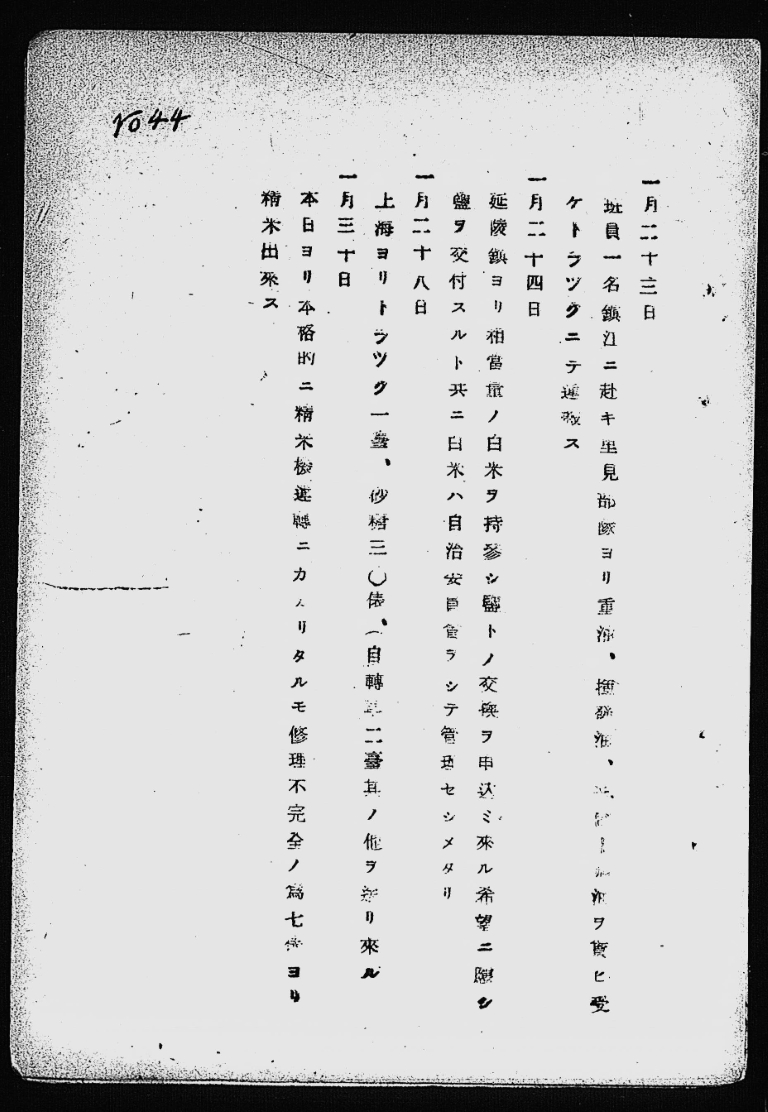 No 44
一月二十三日
班員一名鎭江ニ赴キ里見部隊ヨリ重油、揮發油、油ヲ貰ヒ受
ケトラツクニテ運搬ス
一月二十四日
延陵鎭ヨリ相當量ノ白米ヲ持參シ鹽トノ交換ヲ申込ミ來ル希望ニ應シ
鹽ヲ交付スルト共ニ白米ハ自治委員會ヲシテ管理セシメタリ
一月二十八日
上海ヨリトラツク一臺、砂糖三〇俵、(自轉車二臺其ノ他ヲ送リ來ル
一月三十日
本日ヨリ本格的ニ精米機運轉ニカヽリタルモ修理不完全ノ爲七俵ヨリ
精米出來ス